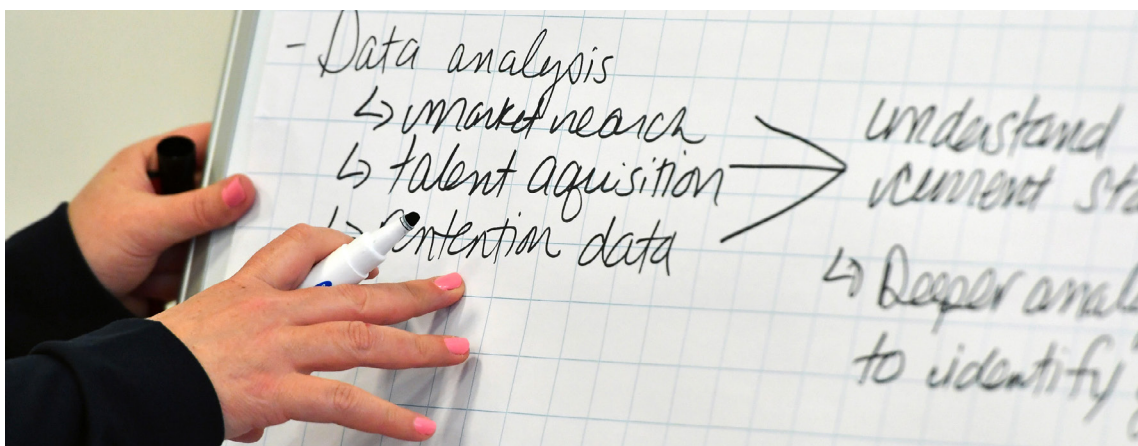 - Data analysis
↳ market research
↳ talent aquisition
↳ rentention data
understand
current sta
↳ Deeper anal
to identify